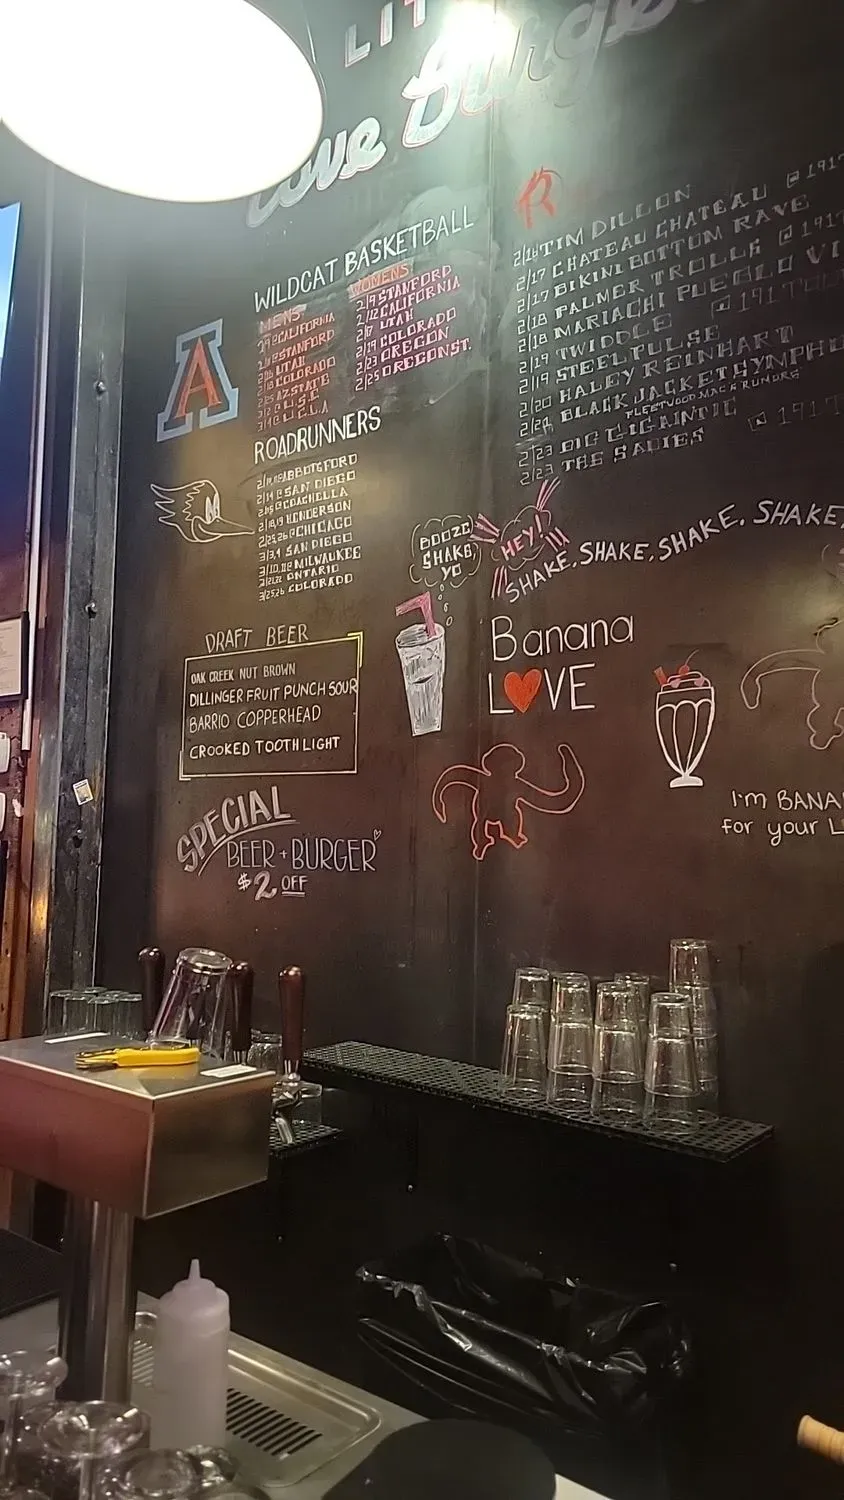 LIT
Love Burge
WILDCAT BASKETBALL
MENS
CALIFORNIA
STANFORD
UTAH
COLORADO
AZ STATE
U.S.C.
U.C.L.A
WOMENS
2/9 STANFORD
2/12 CALIFORNIA
UTAH
2/19 COLORADO
2/23 OREGON
2/25 OREGON ST.
A
ROADRUNNERS
ABBOTSFORD
2/14 @ SAN DIEGO
@ COACHELLA
2/18,19 HENDERSON
2/25,26 @ CHICAGO
3/3,4 SAN DIEGO
3/10,11 @ MILWAUKEE
ONTARIO
3/25,26 COLORADO
R
2/16 TIM DILLON
2/17 CHATEAU CHATEAU @ 191
2/17 BIKINI BOTTOM RAVE
2/18 PALMER TROLLS @ 191
2/18 MARIACHI PUEBLO VI
2/19 TWIDDLE @ 191 TOU
2/19 STEEL PULSE
2/20 HALEY REINHART
BLACK JACKET SYMPHO
FLEETWOOD MAC RUMORS
2/23 BIG GIGANTIC @ 191
2/23 THE SADIES
BOOZE
SHAKE,
YO
HEY!
SHAKE, SHAKE, SHAKE, SHAKE,
DRAFT BEER
OAK CREEK NUT BROWN
DILLINGER FRUIT PUNCH SOUR
BARRIO COPPERHEAD
CROOKED TOOTH LIGHT
Banana
LOVE
I'm BANA
for your L
SPECIAL
BEER + BURGER
$2 OFF